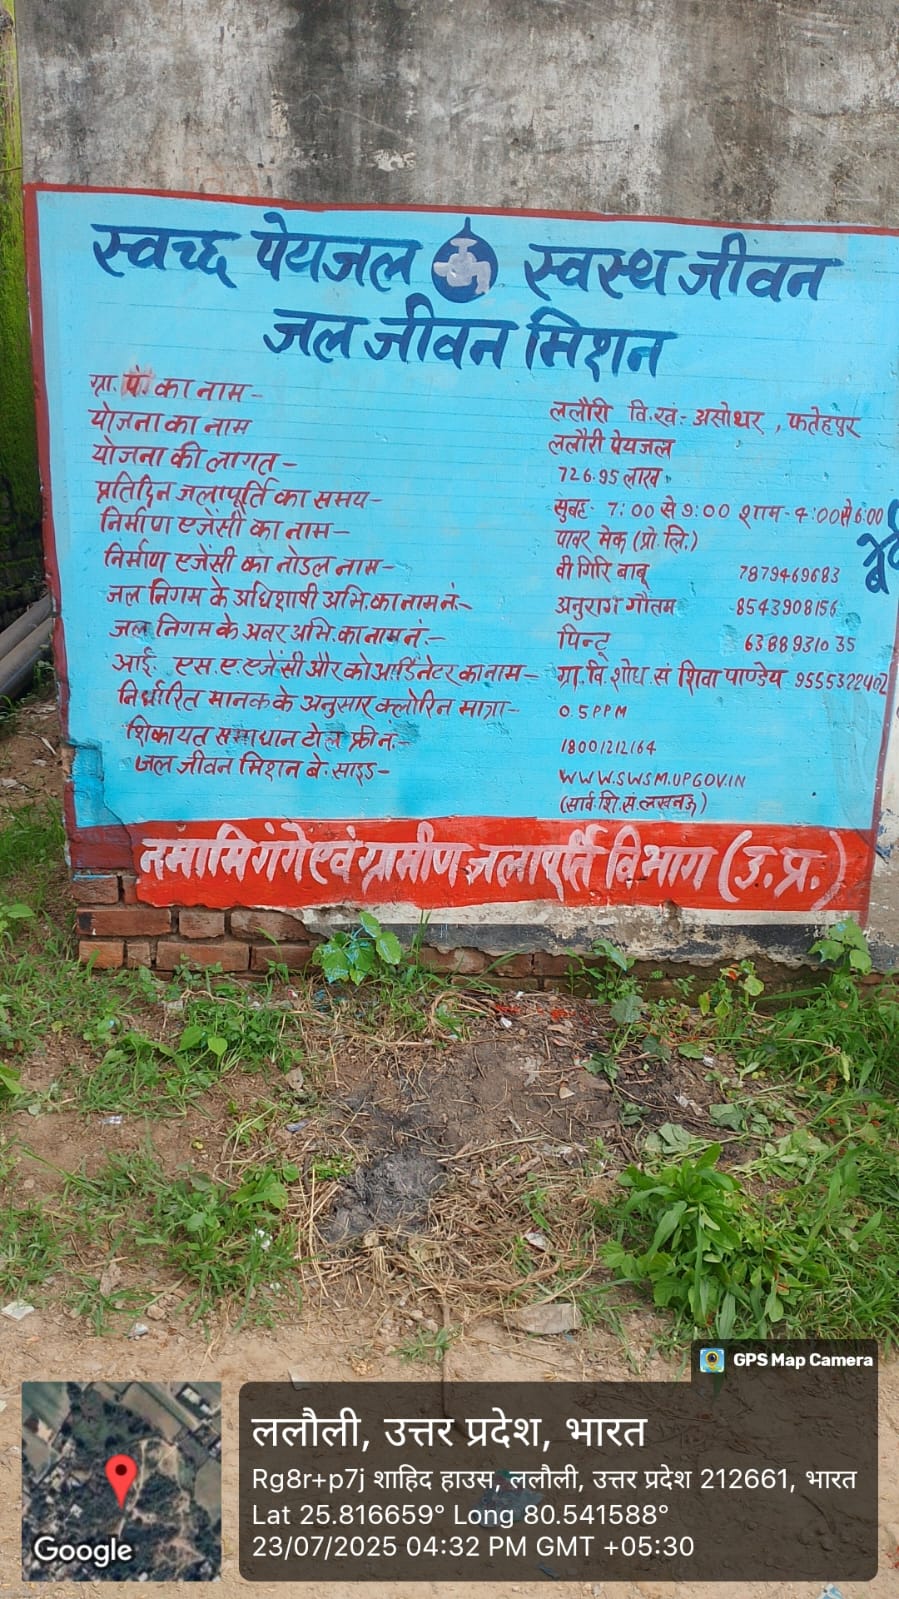 स्वच्छ पेयजल स्वस्थ जीवन
जल जीवन मिशन
ग्रा. पं. का नाम- ललौरी वि.खं:- असोथर , फतेहपुर
योजना का नाम ललौरी पेयजल
योजना की लागत- 726.95 लाख
प्रतिदिन जलापूर्ति का समय- सुबह- 7:00 से 9:00 शाम- 4:00 से 6:00
निर्माण एजेंसी का नाम- पावर मेक (प्रो. लि.)
निर्माण एजेंसी का नोडल नाम- वी गिरि बाबू 7879469683
जल निगम के अधिशाषी अभि. का नाम नं.- अनुराग गौतम 8543908156
जल निगम के अवर अभि. का नाम नं.- पिन्टू 6388931035
आई. एस. ए. एजेंसी और कोआर्डिनेटर का नाम- ग्रा. वि. शोध. सं शिवा पाण्डेय 9555322402
निर्धारित मानक के अनुसार क्लोरिन मात्रा- 0.5PPM
शिकायत समाधान टोल फ्री नं.- 18001212164
जल जीवन मिशन बे. साइड- WWW.SWSM.UPGOV.IN
(सार्व. शि. सं. लखनऊ)
नमामि गंगे एवं ग्रामीण जलापूर्ति विभाग (उ.प्र.)
GPS Map Camera
ललौली, उत्तर प्रदेश, भारत
Rg8r+p7j शाहिद हाउस, ललौली, उत्तर प्रदेश 212661, भारत
Lat 25.816659° Long 80.541588°
23/07/2025 04:32 PM GMT +05:30
Google